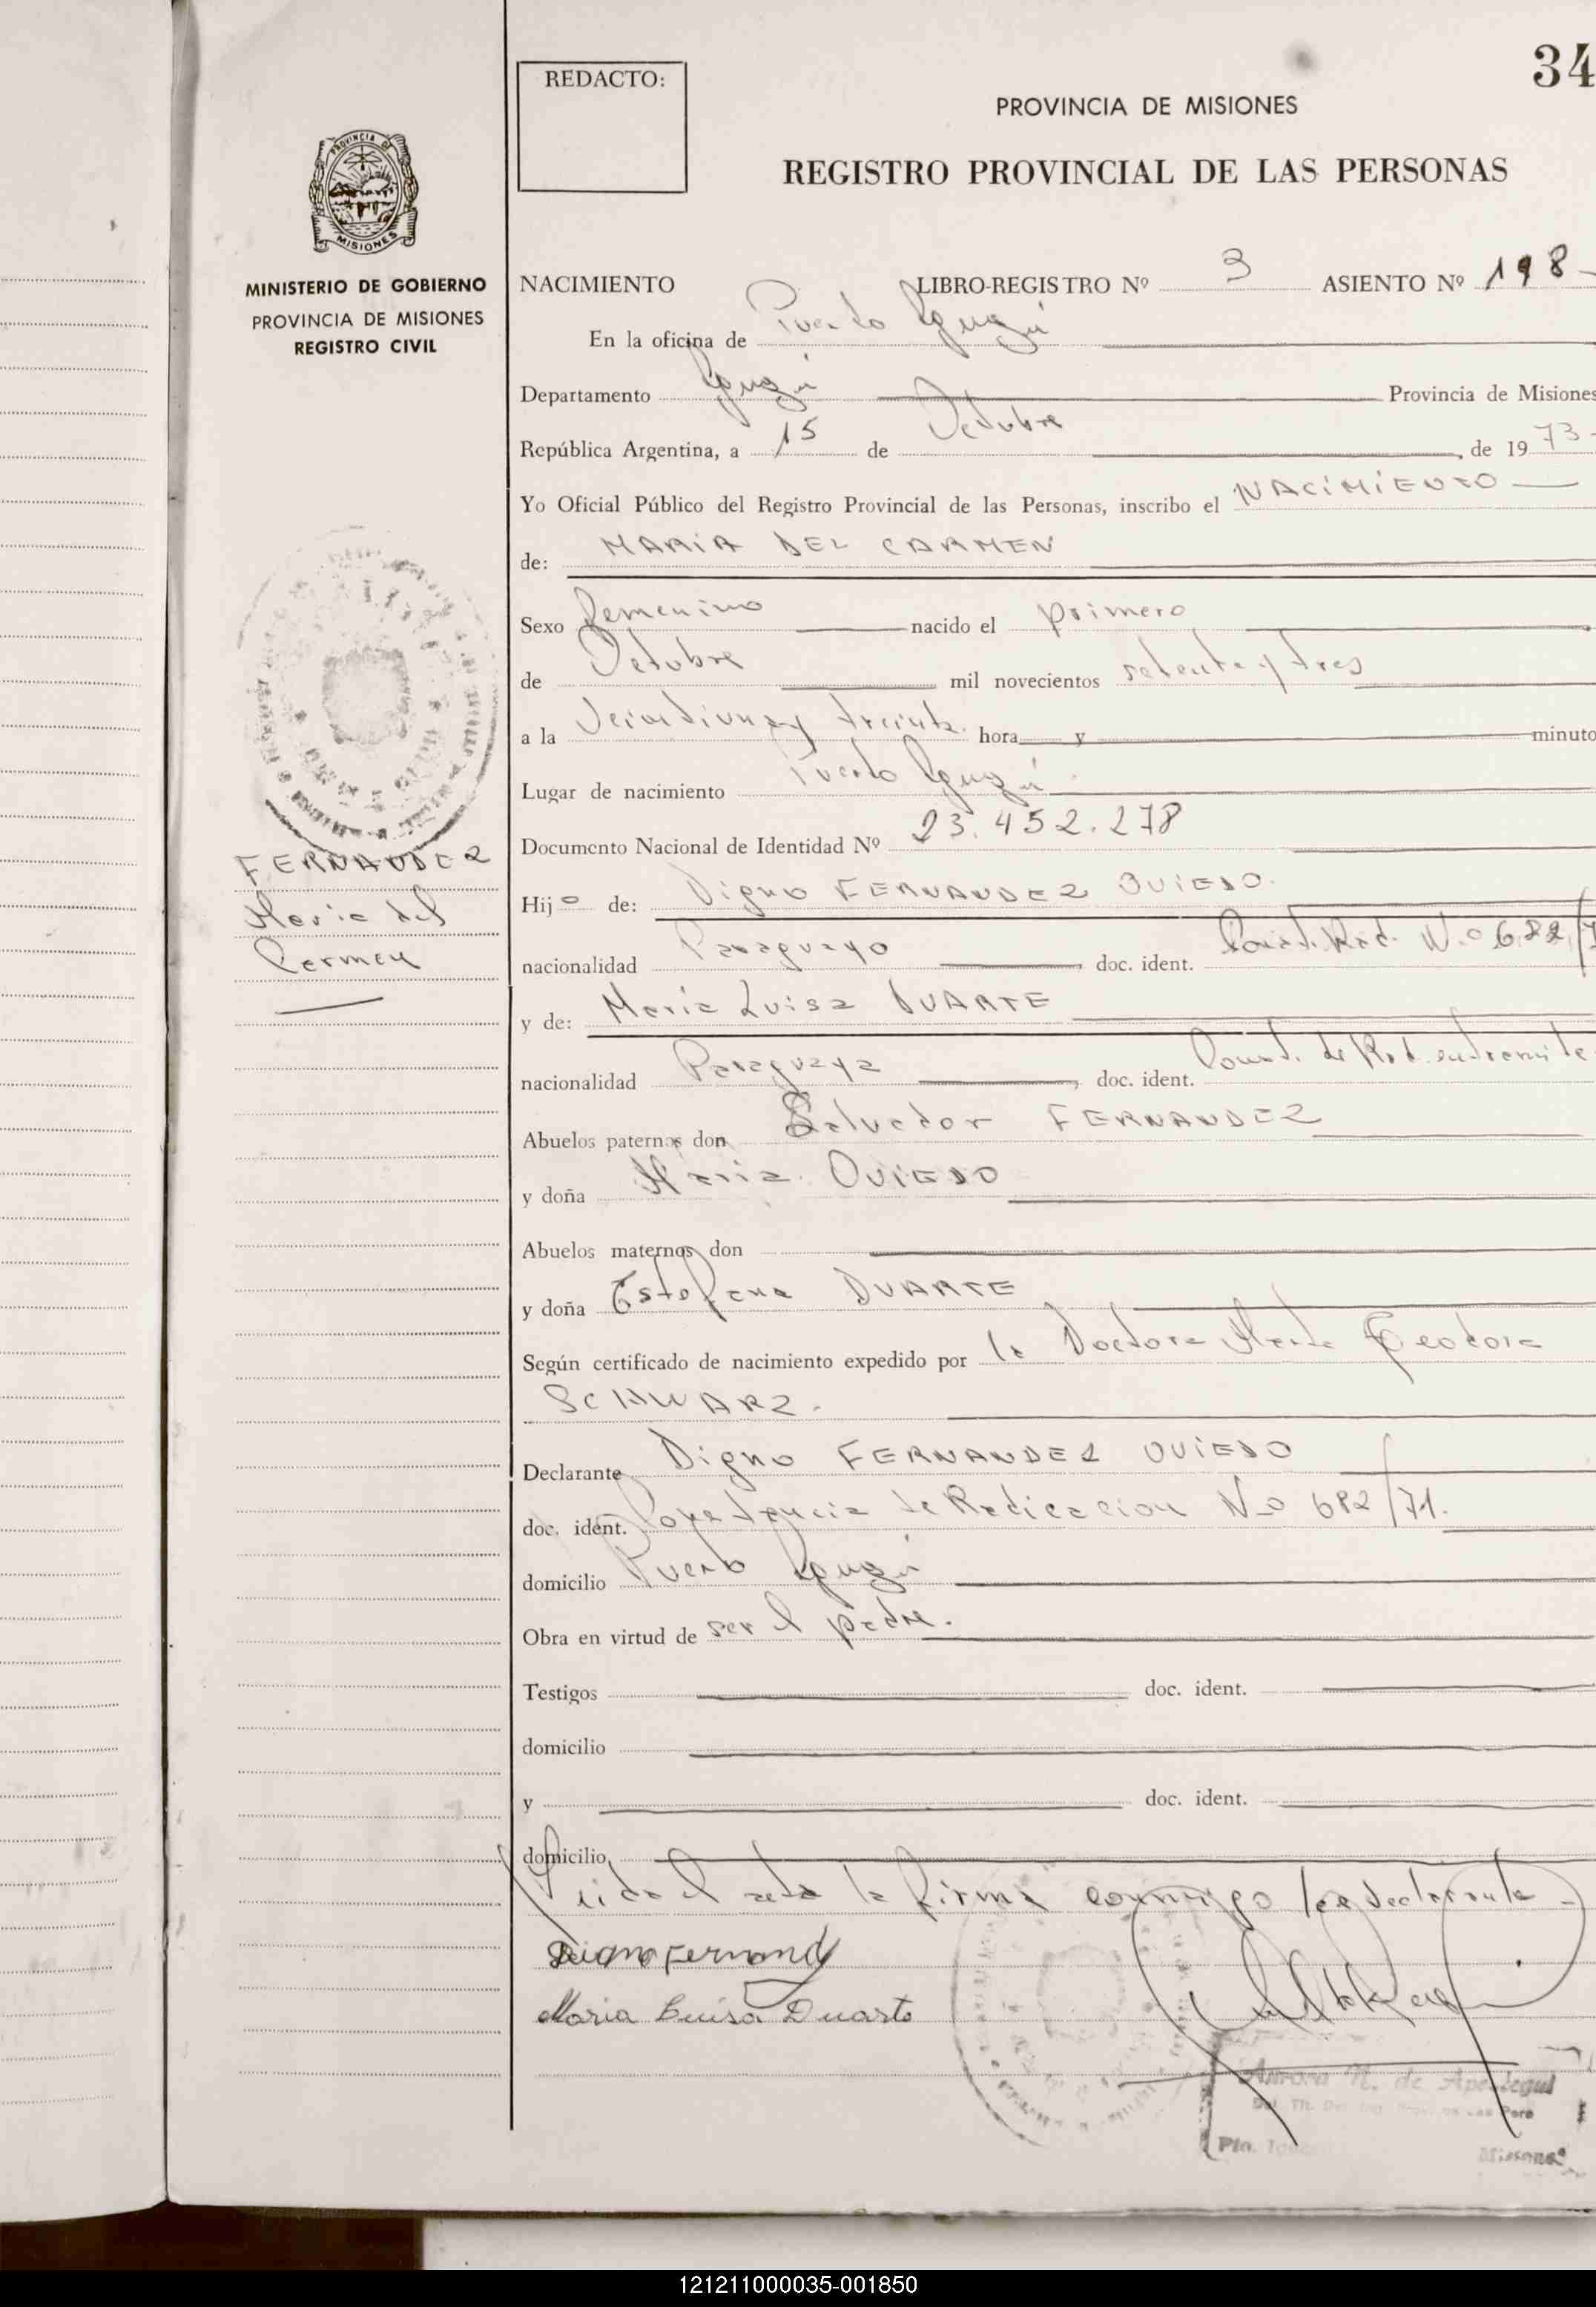 34
REDACTO:
PROVINCIA DE MISIONES
REGISTRO PROVINCIAL DE LAS PERSONAS
PROVINCIA DE
MISIONES
MINISTERIO DE GOBIERNO
PROVINCIA DE MISIONES
REGISTRO CIVIL
FERNANDEZ
Maria del
Carmen
NACIMIENTO LIBRO-REGISTRO Nº 3 ASIENTO Nº 198-
En la oficina de Puerto Iguazú
Departamento Iguazú Provincia de Misiones
República Argentina, a 15 de Octubre, de 1973-
Yo Oficial Público del Registro Provincial de las Personas, inscribo el NACIMIENTO
de: MARIA DEL CARMEN
Sexo Femenino nacido el primero
de Octubre mil novecientos setenta y tres
a la veintiuna y treinta. hora y minuto
Lugar de nacimiento Puerto Iguazú.
Documento Nacional de Identidad Nº 23.452.278
Hijo de: Digno FERNANDEZ OVIEDO.
nacionalidad Paraguayo, doc. ident. Const. Rad. N.o 682/7
y de: Maria Luisa DUARTE
nacionalidad Paraguaya, doc. ident. Const. de Rad. en tramite
Abuelos paternos don Salvador FERNANDEZ
y doña Maria OVIEDO
Abuelos maternos don
y doña Estefana DUARTE
Según certificado de nacimiento expedido por la Doctora Marta Teodora
SCHWARZ.
Declarante Digno FERNANDEZ OVIEDO
doc. ident. Constancia de Radicacion No 682/71.
domicilio Puerto Iguazú
Obra en virtud de ser el padre.
Testigos doc. ident.
domicilio
y doc. ident.
domicilio
Leida el acta la firma conmigo el declarante-
Digno Fernand
Maria Luisa Duarte
Aurora N. de Apestegui
Misiones
121211000035-001850